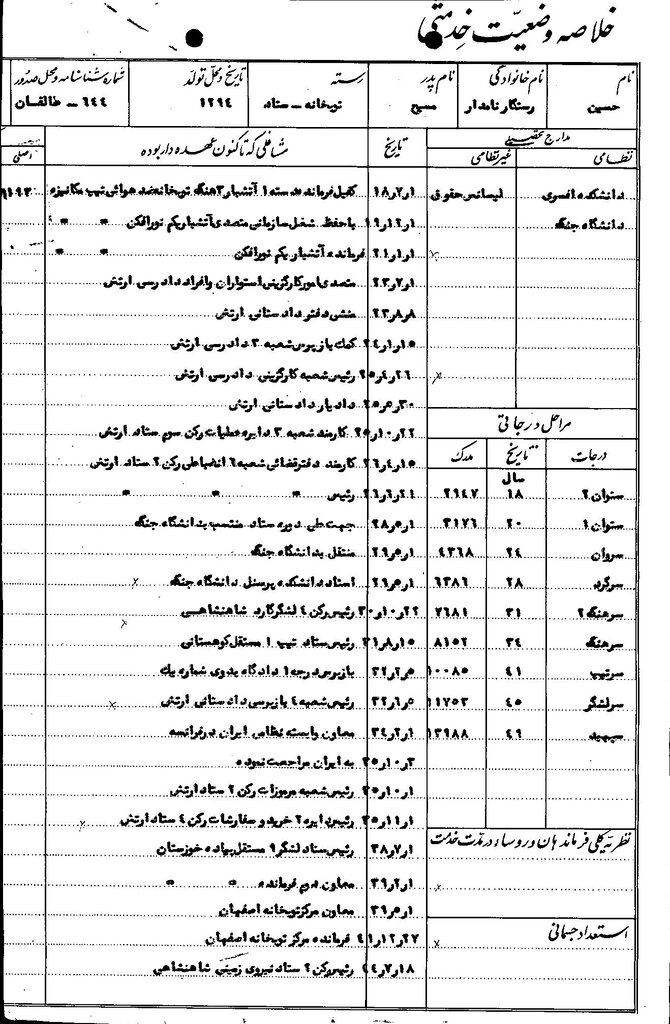 خلاصه وضعیّت خدمتی
نام
نام خانوادگی
نام پدر
رسته
تاریخ و محل تولد
شماره شناسنامه و محل صدور
حسین
رستگار نامدار
مسیح
توپخانه - ستاد
۱۲۹۴
۶۴۴ - طالقان
مدارج تحصیلی
نظامی
غیر نظامی
دانشکده افسری
لیسانس حقوق
دانشگاه جنگ
مراحل درجاتی
درجات
تاریخ
مدرک
سال
ستوان ۲
۱۸
۲۹۴۷
ستوان ۱
۲۰
۳۱۷۶
سروان
۲۴
۴۳۶۸
سرگرد
۲۸
۶۳۸۶
سرهنگ ۲
۳۱
۷۶۸۱
سرهنگ
۳۴
۸۱۵۲
سرتیپ
۴۱
۱۰۰۸۵
سرلشگر
۴۵
۱۱۷۵۳
سپهبد
۴۹
۱۳۹۸۸
نظریه کلی فرماندهان و روساء در مدت خدمت
استعداد جسمانی
تاریخ
مشاغلی که تاکنون عهده دار بوده
اصلی
۱ر۲ر۱۸ کفیل فرمانده دسته ۱ آتشبار ۳ هنگ توپخانه ضد هوائی تیپ مکانیزه
۱ر۱۲ر۱۹ با حفظ شغل سازمانی متصدی آتشبار یکم نورافکن " "
۱ر۱ر۲۱ فرمانده آتشبار یکم نورافکن " "
۱ر۷ر۲۳ متصدی امور کارگزینی استواران و افراد دادرسی ارتش
۸ر۸ر۲۳ منشی دفتر دادستانی ارتش
۱۵ر۱ر۲۴ کمک بازپرس شعبه ۳ دادرسی ارتش
۲۶ر۴ر۲۵ رئیس شعبه کارگزینی دادرسی ارتش
۳۰ر۵ر۲۵ دادیار دادستانی ارتش
۲۲ر۱۰ر۲۵ کارمند شعبه ۳ دایره عملیات رکن سوم ستاد ارتش
۱۵ر۴ر۲۶ کارمند دفتر قضائی شعبه ۶ انضباطی رکن ۲ ستاد ارتش
۲۱ر۶ر۲۶ رئیس " " "
۱ر۵ر۲۸ جهت طی دوره ستاد منتسب بدانشگاه جنگ
۱ر۵ر۲۹ منتقل بدانشگاه جنگ
۱ر۵ر۲۹ استاد دانشکده پرسنل دانشگاه جنگ
۲۲ر۱۰ر۳۰ رئیس رکن ۴ لشگر گارد شاهنشاهی
۱۵ر۸ر۳۱ رئیس ستاد تیپ ۱ مستقل کوهستانی
۵ر۲ر۳۲ بازپرس درجه ۱ دادگاه بدوی شماره یک
۵ر۶ر۳۲ رئیس شعبه ۴ بازپرسی دادستانی ارتش
۱ر۲ر۳۴ معاون وابسته نظامی ایران در فرانسه
۳ر۱۰ر۳۵ به ایران مراجعت نموده
۱ر۱۰ر۳۵ رئیس شعبه مرموزات رکن ۲ ستاد ارتش
۱ر۱۱ر۳۵ رئیس دایره ۲ خرید و سفارشات رکن ۴ ستاد ارتش
۱ر۷ر۳۸ رئیس ستاد لشگر ۹ مستقل پیاده خوزستان
۱ر۲ر۳۹ معاون دوم فرمانده " "
۱ر۵ر۳۹ معاون مرکز توپخانه اصفهان
۲۷ر۱۲ر۴۱ فرمانده مرکز توپخانه اصفهان
۱۸ر۷ر۴۴ رئیس رکن ۲ ستاد نیروی زمینی شاهنشاهی